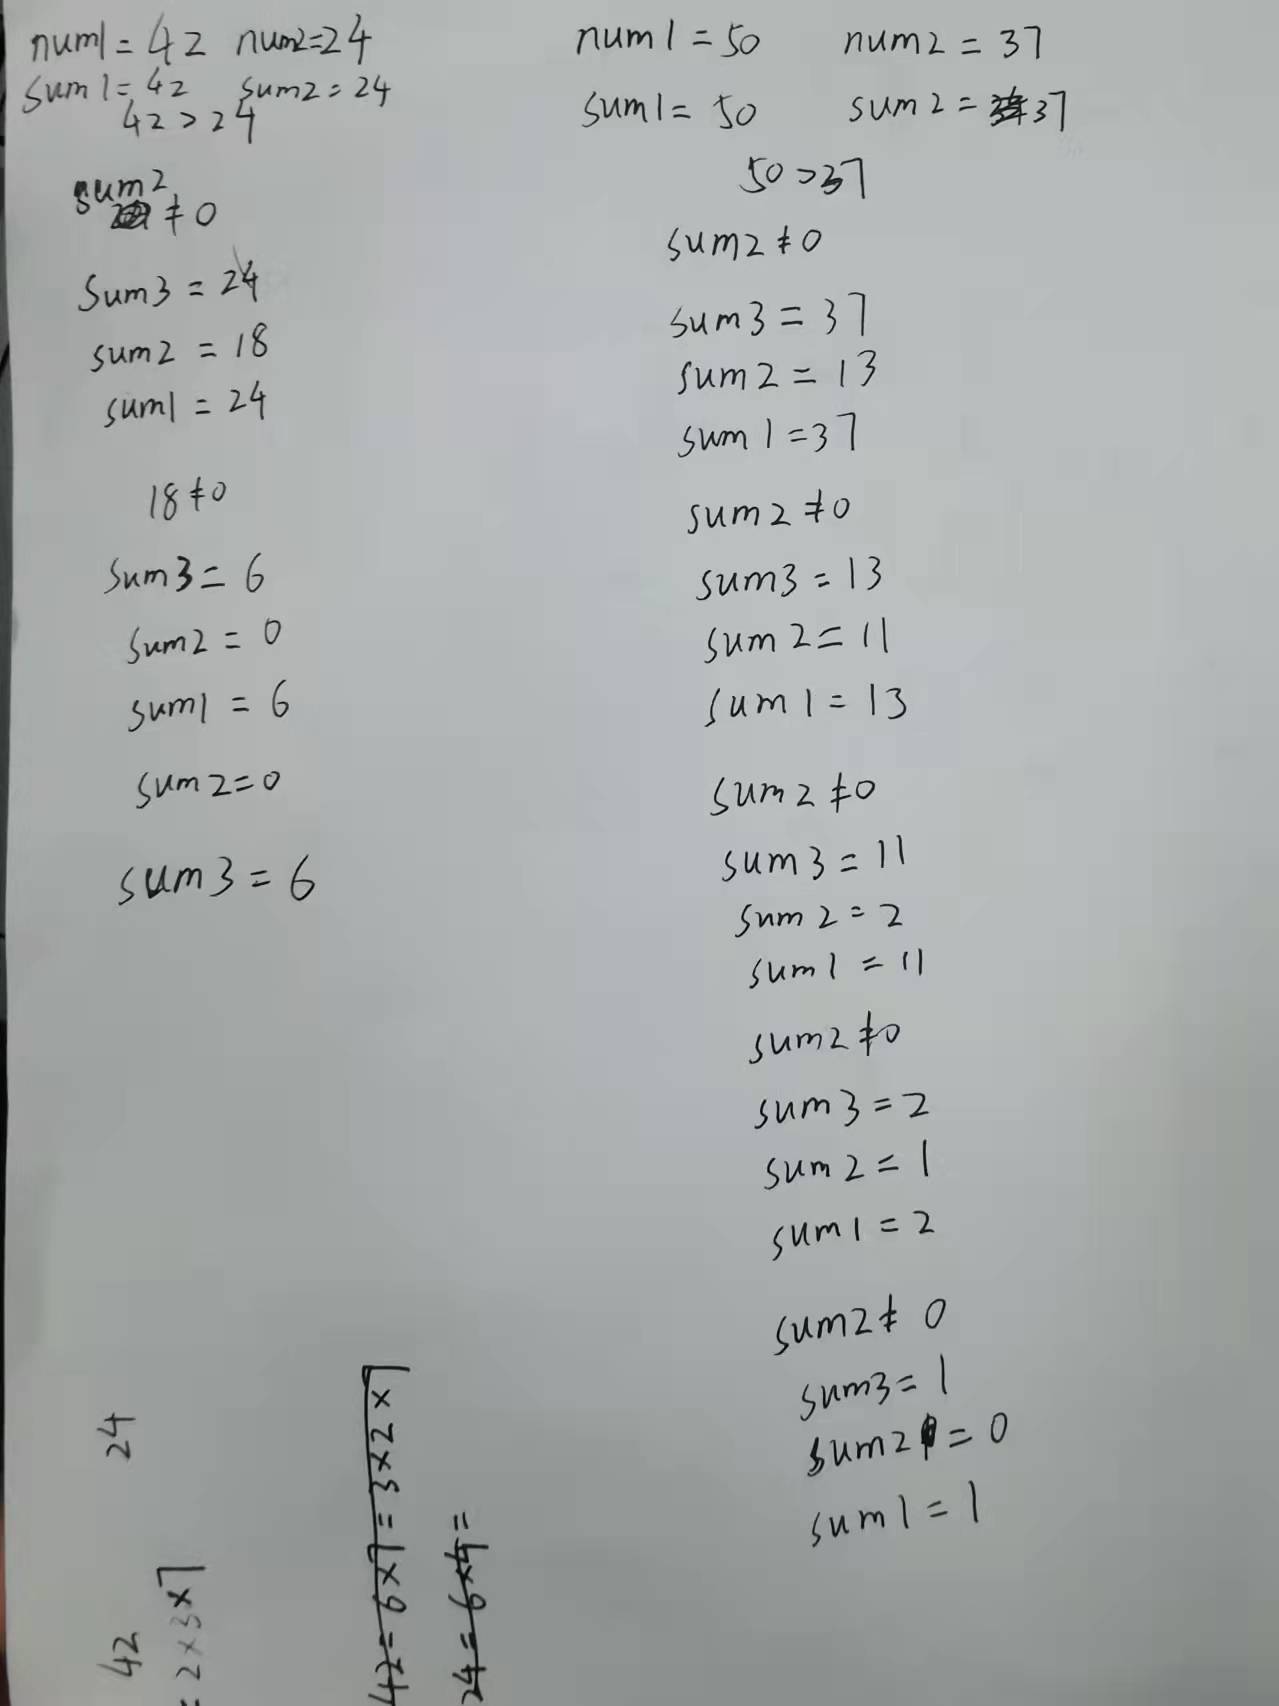 num1 = 42 num2=24
sum1 = 42 sum2 = 24
42 > 24
sum2
≠ 0
sum3 = 24
sum2 = 18
sum1 = 24
18 ≠ 0
sum3 = 6
sum2 = 0
sum1 = 6
sum2 = 0
sum3 = 6
num1 = 50 num2 = 37
sum1 = 50 sum2 = 37
50 > 37
sum2 ≠ 0
sum3 = 37
sum2 = 13
sum1 = 37
sum2 ≠ 0
sum3 = 13
sum2 = 11
sum1 = 13
sum2 ≠ 0
sum3 = 11
sum2 = 2
sum1 = 11
sum2 ≠ 0
sum3 = 2
sum2 = 1
sum1 = 2
sum2 ≠ 0
sum3 = 1
sum2 = 0
sum1 = 1
42 24
= 2×3×7
42 = 6×7 = 3×2×7
24 = 6×4 =